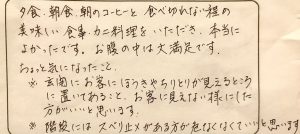 夕食、朝食、朝のコーヒーと食べきれない程の
美味しい食事、カニ料理をいただき、本当に
よかったです。お腹の中は大満足です。
ちょっと気になったこと。
※ 玄関にお客にほうきやちりとりが見えるところ
に置いてあること、お客に見えない様にした
方がいいと思います。
※ 階段にはスベリ止メがある方が危なくなくていいと思います